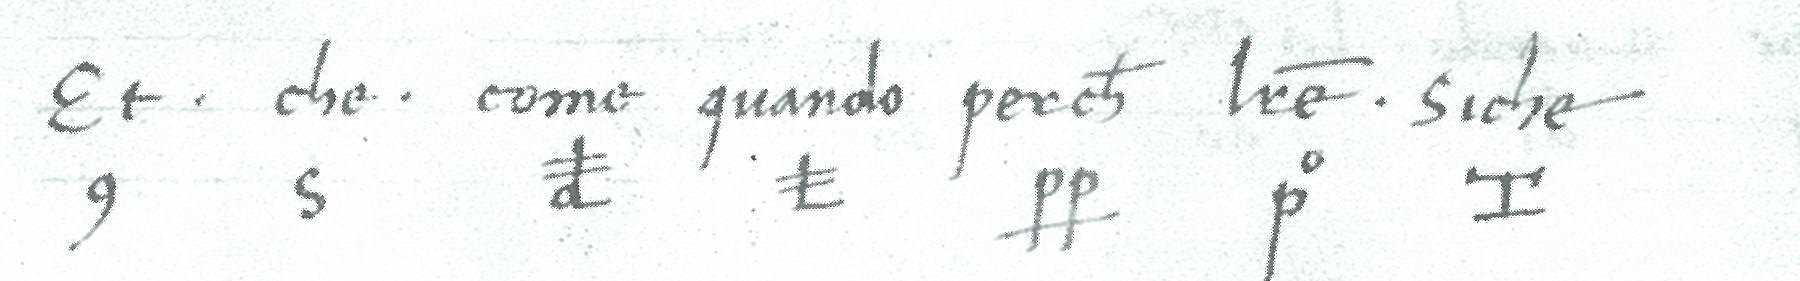 Et · che · come quando perch lre · siche
9 s pp pº